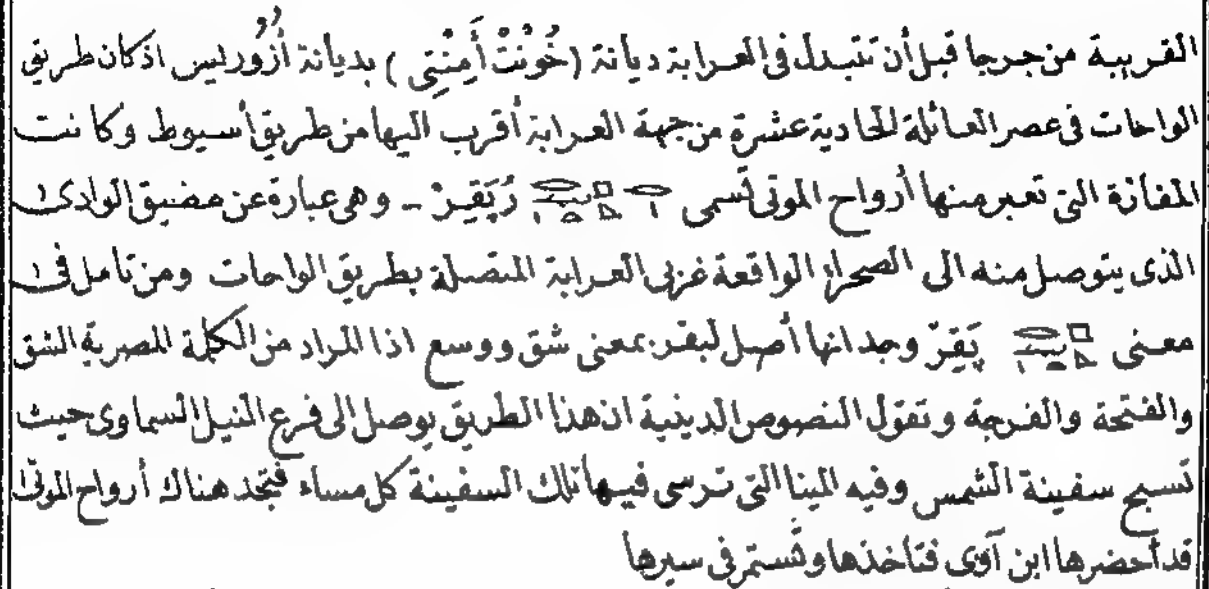 القريبة من جرجا قبل أن تتبدل فى العرابة ديانة (خُونْتْ أَمِنْتِى) بديانة أُزُورليس اذ كان طريق
الواحات فى عصر العائلة الحادية عشرة من جهة العرابة أقرب اليها من طريق أسيوط وكانت
المفازة التى تعبر منها أرواح الموتى تسمى رُبَقِيرْ - وهى عبارة عن مضيق الوادى
الذى يتوصل منه الى الصحراء الواقعة غربى العرابة المتصلة بطريق الواحات ومن تأمل فى
معنى پَقِرّ وجد انها أصل لبقر بمعنى شق ووسع اذا المراد من الكلمة المصرية الشق
والفتحة والفرجة وتقول النصوص الدينية ان هذا الطريق يوصل الى فرع النيل السماوى حيث
تسبح سفينة الشمس وفيه المينا التى ترسى فيها تلك السفينة كل مساء فتجد هناك أرواح الموتى
قد أحضرها ابن آوى فتاخذها وتستمر فى سيرها